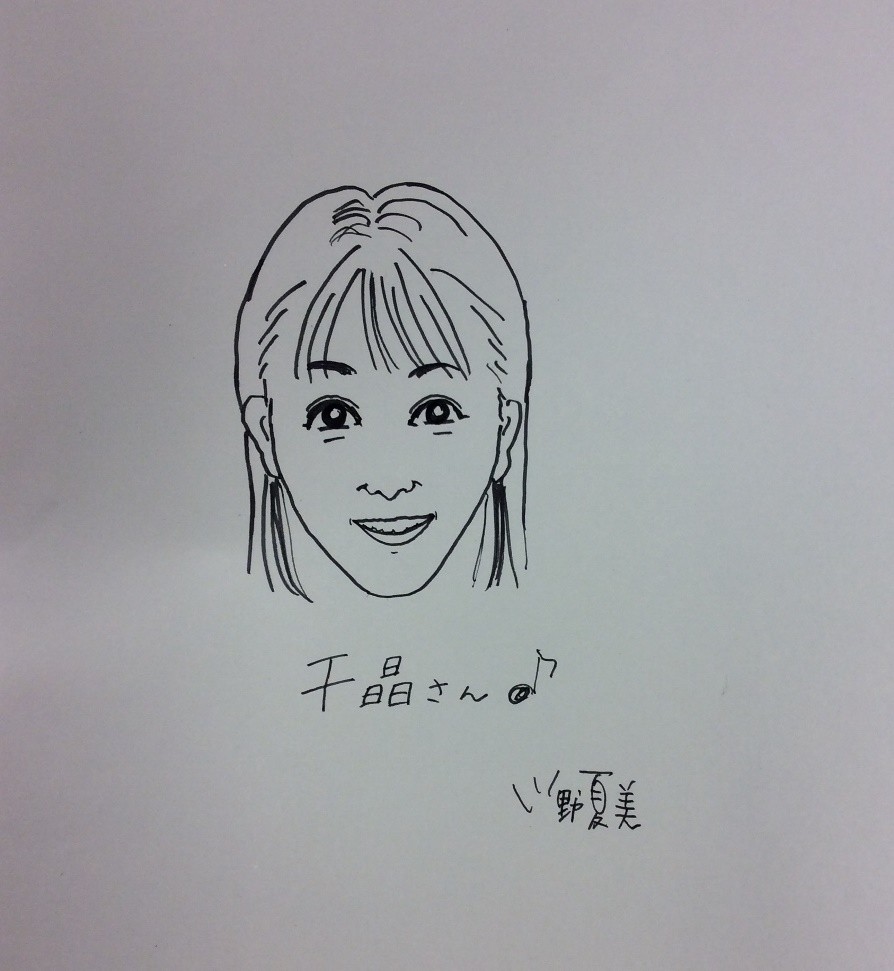 千晶さん♪
川野夏美